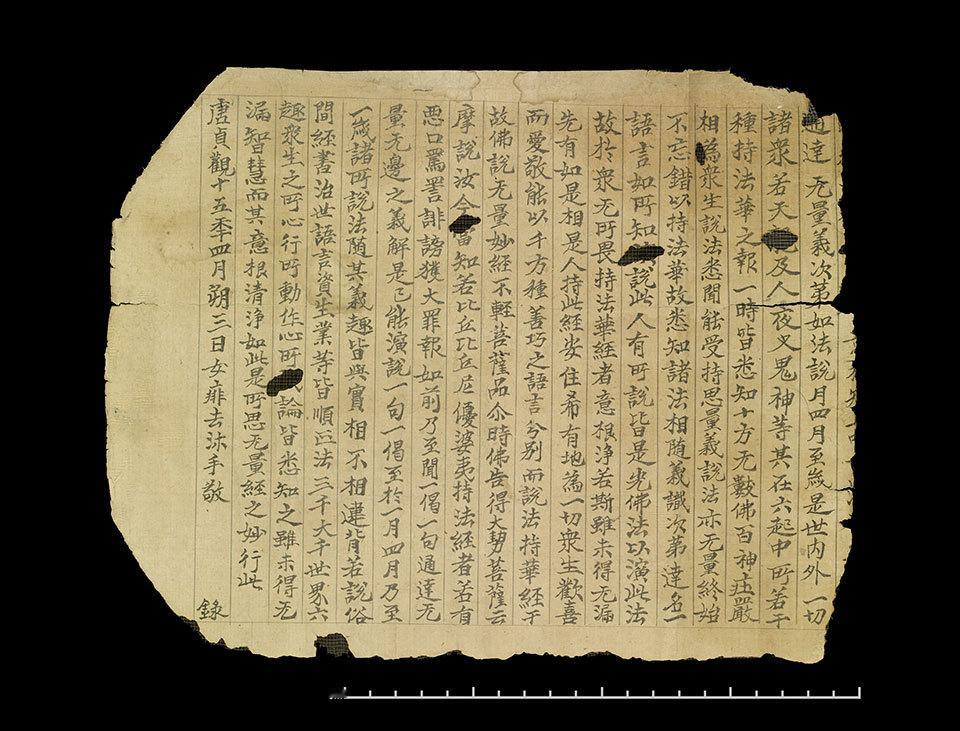 通達无量義次第如法說月四月至歲是世內外一切
諸衆若天及人夜叉鬼神等其在六起中所若干
種持法華之報一時皆悉知十方无數佛百神庄嚴
相為衆生說法悉聞能受持思量義說法亦无量終始
不忘錯以持法華故悉知諸法相随義識次第達名一
語言如所知說此人有所說皆是先佛法以演此法
故於衆无所畏持法華經者意根淨若斯雖未得无漏
先有如是相是人持此經安住希有地為一切衆生歡喜
而愛敬能以千方種善巧之語言分别而說法持華經千
故佛說无量妙經不輕菩薩品尒時佛告得大勢菩薩云
摩說汝今當知若比丘比丘尼優婆夷持法經者若有
悪口罵詈誹謗獲大罪報如前乃至聞一偈一句通達无
量无邊之義解是已能演說一句一偈至於一月四月乃至
一歲諸所說法随其義趣皆與實相不相違背若說俗
間經書治世語言資生業等皆順正法三千大千世界六
趣衆生之所心行所動作心所論皆悉知之雖未得无
漏智慧而其意根清淨如此是所思无量經之妙行此
唐貞觀十五年四月朔三日女去沐手敬
錄